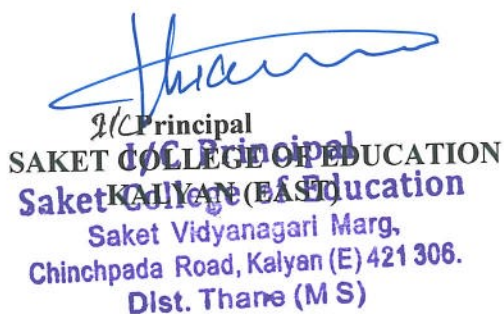 I/C Principal
SAKET COLLEGE OF EDUCATION
KALYAN (EAST)
I/C Principal
Saket College of Education
Saket Vidyanagari Marg,
Chinchpada Road, Kalyan (E) 421 306.
Dist. Thane (M S)